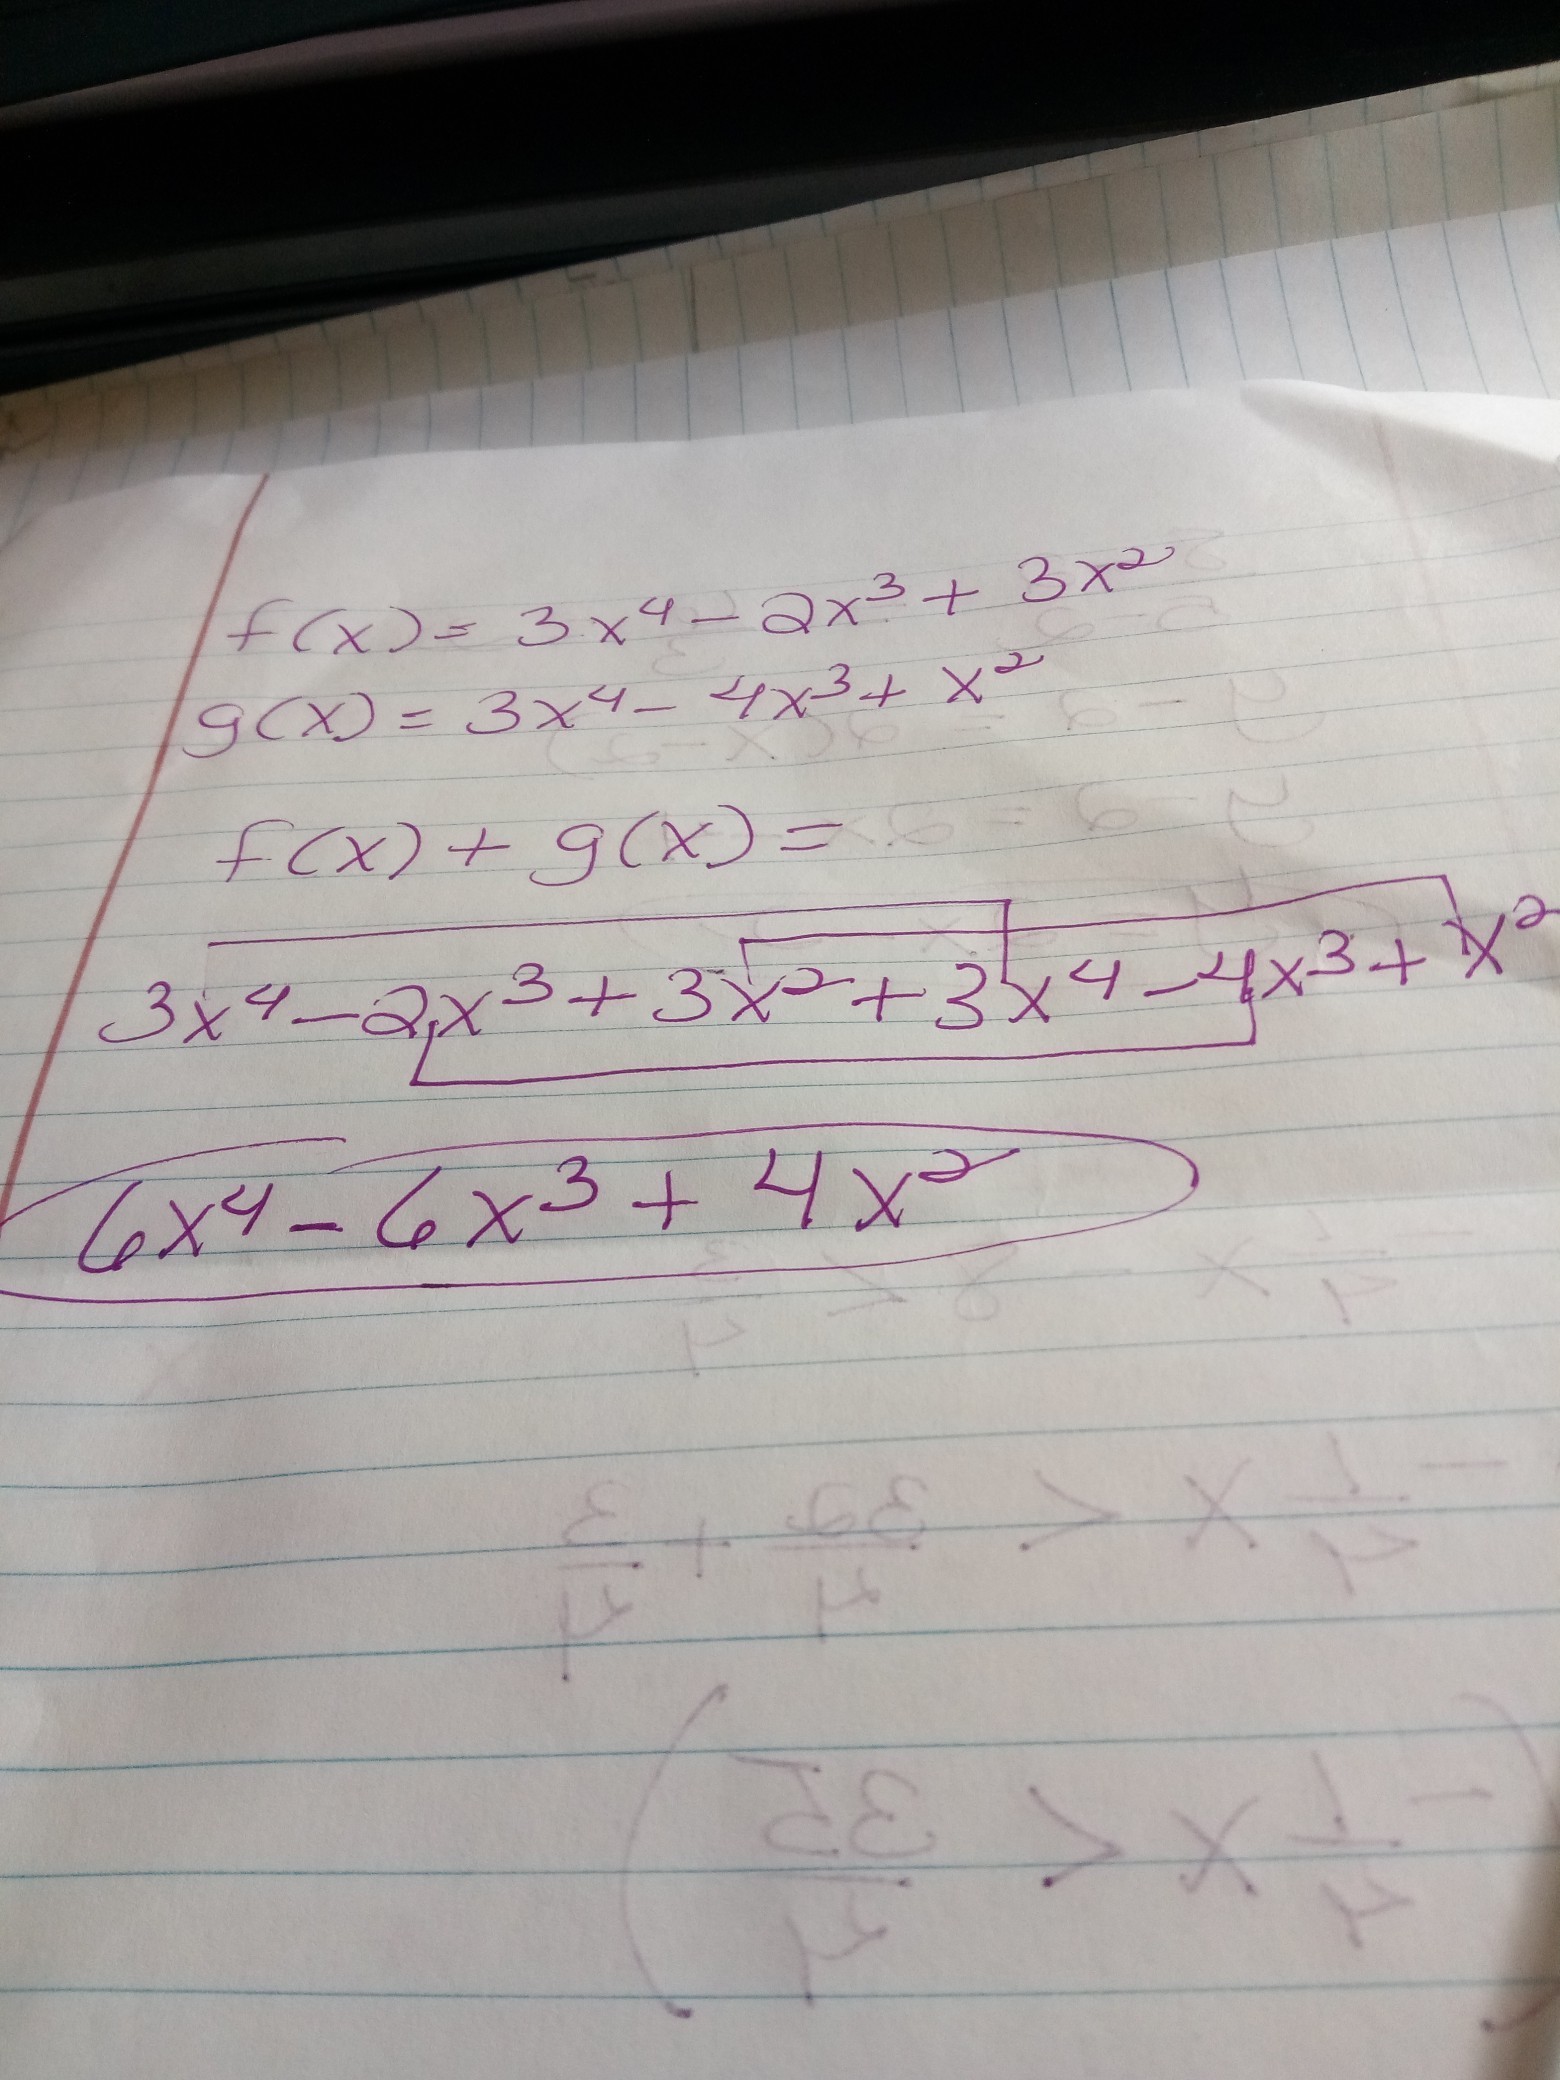 f(x) = 3x⁴ - 2x³ + 3x²
g(x) = 3x⁴ - 4x³ + x²
f(x) + g(x) =
3x⁴ - 2x³ + 3x² + 3x⁴ - 4x³ + x²
6x⁴ - 6x³ + 4x²